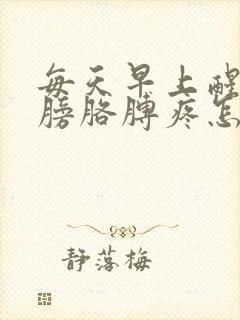 每天早上醒
膀胳膊疼怎
静落梅